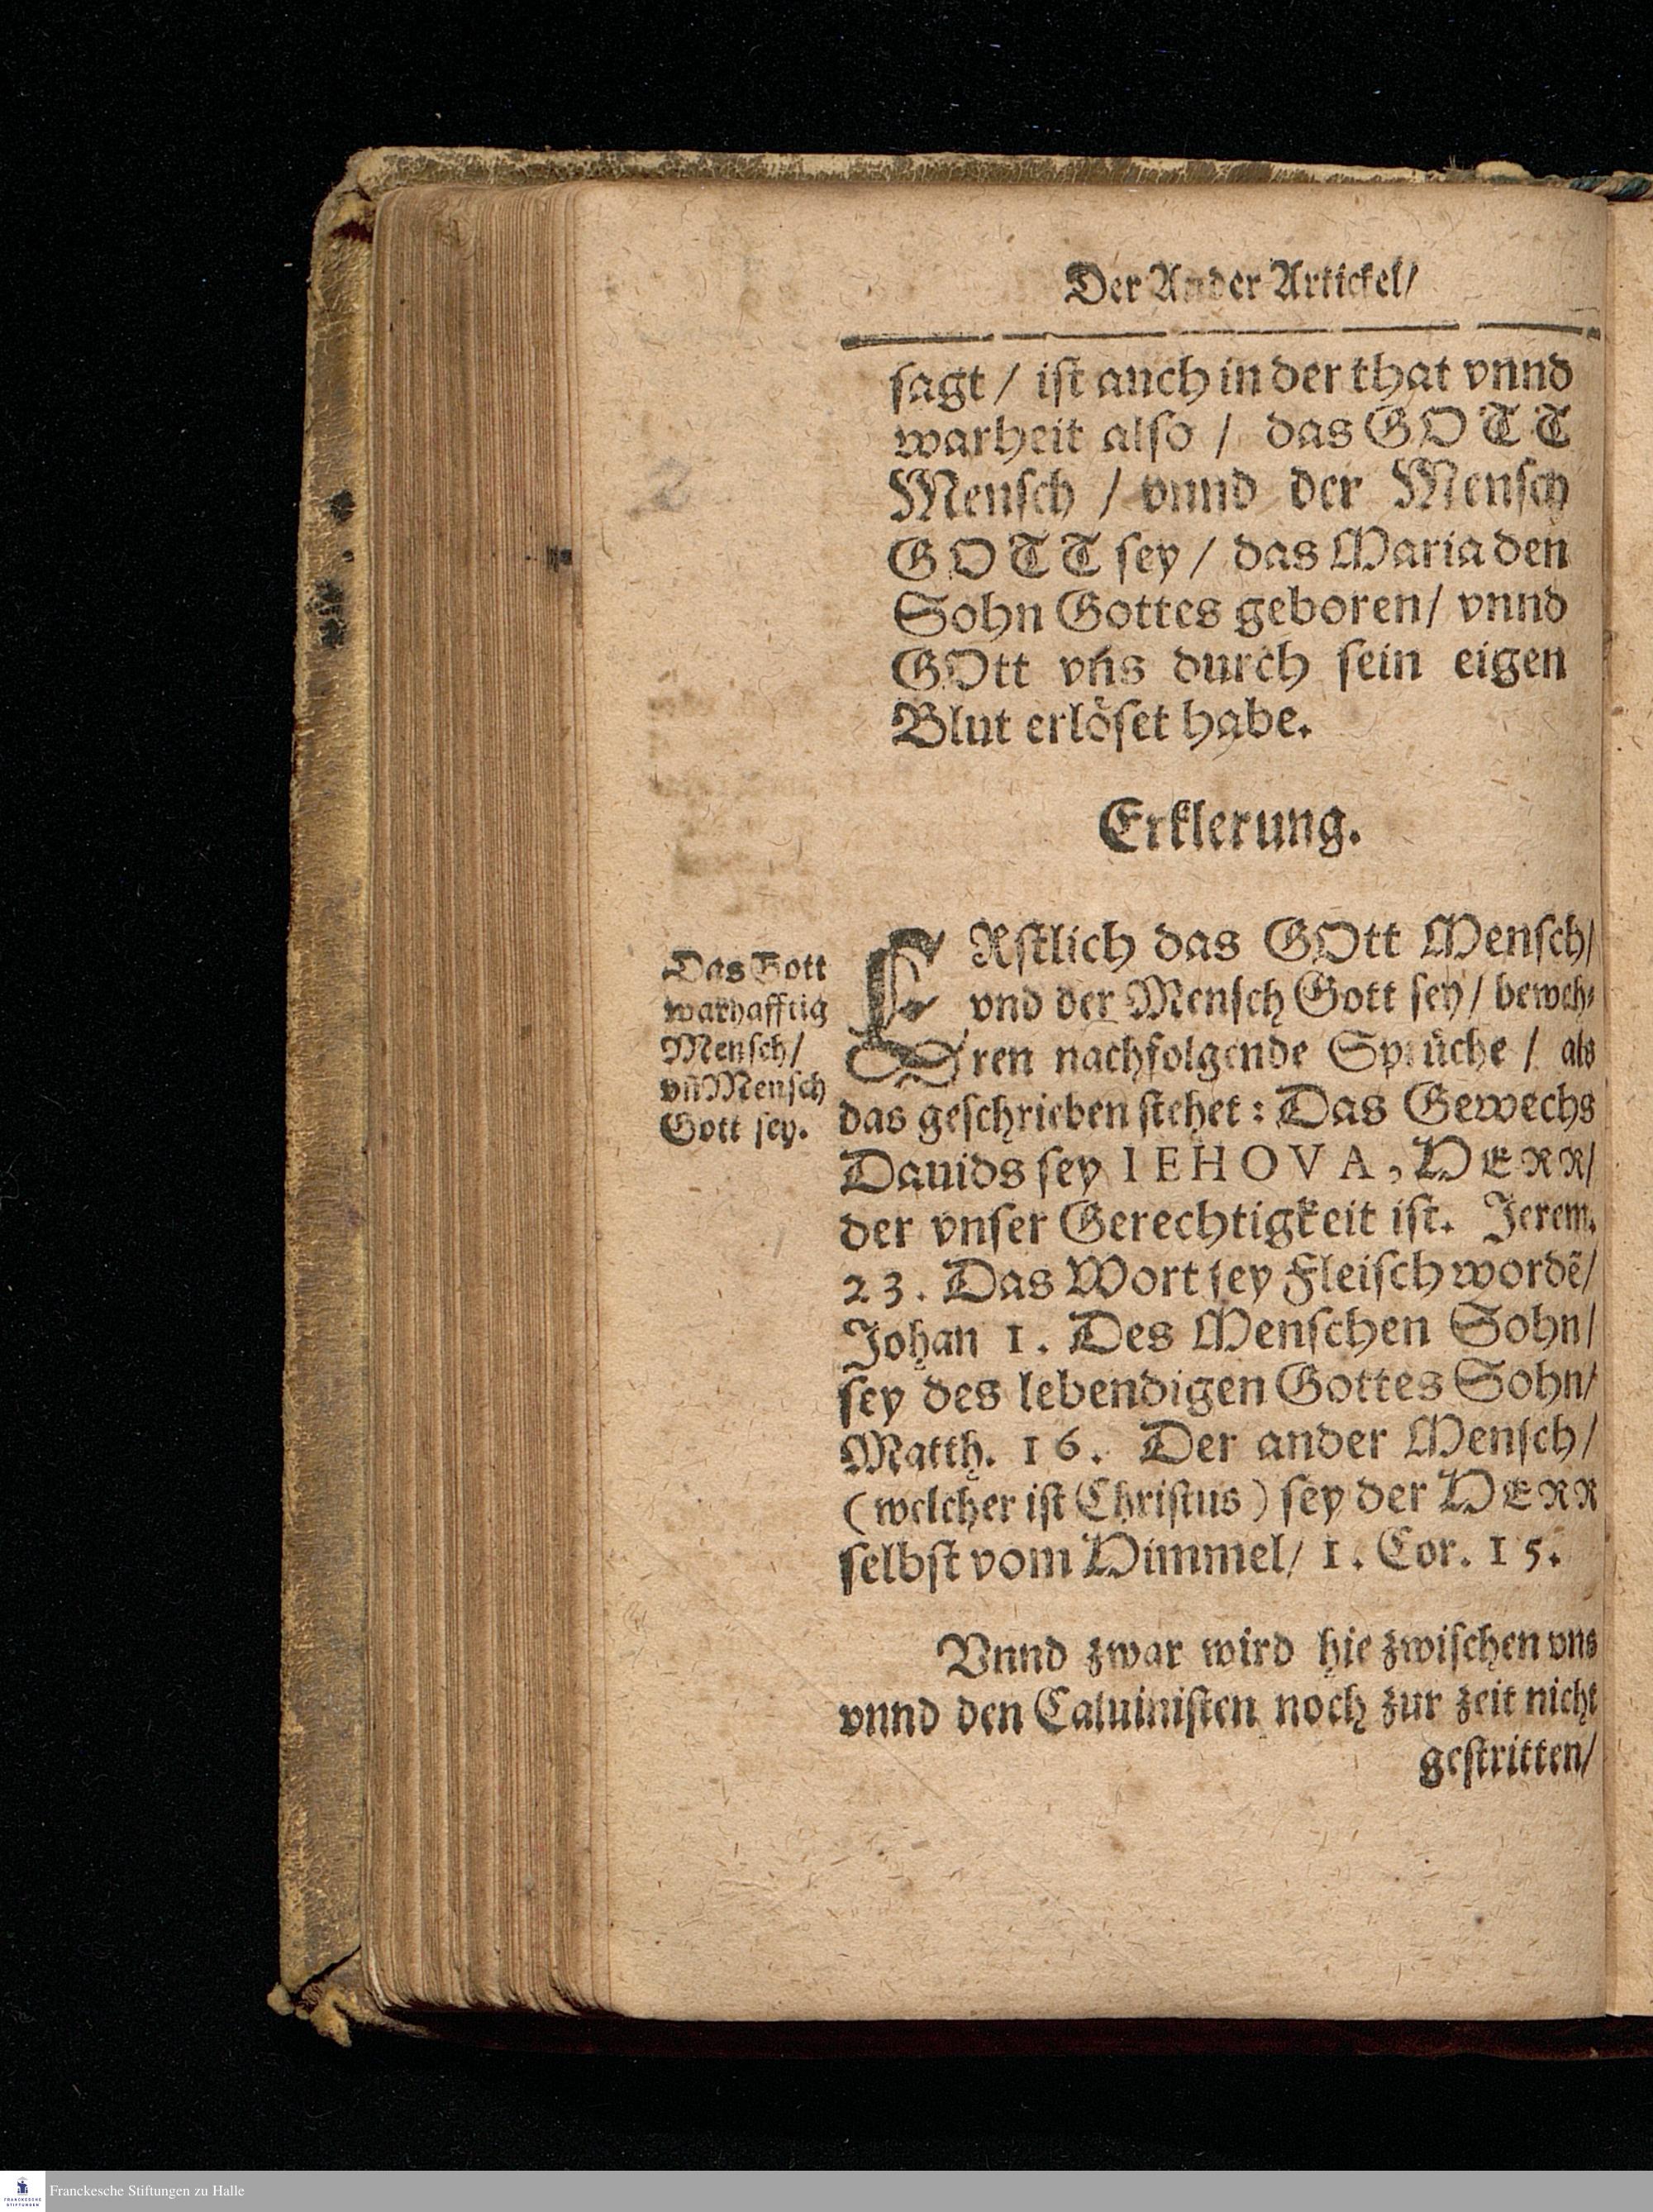 Der Ander Artickel/
sagt / ist auch in der that vnnd
warheit also / das GOTT
Mensch / vnnd der Mensch
GOTT sey / das Maria den
Sohn Gottes geboren / vnnd
GOtt vns durch sein eigen
Blut erlöset habe.
Erklerung.
Das Gott
warhafftig
Mensch/
vn̄ Mensch
Gott sey.
ERstlich das GOtt Mensch/
vnd der Mensch Gott sey / beweh⸗
ren nachfolgende Sprüche / als
das geschrieben stehet: Das Gewechs
Dauids sey IEHOVA, HERR/
der vnser Gerechtigkeit ist. Jerem.
23. Das Wort sey Fleisch wordẽ/
Johan 1. Des Menschen Sohn/
sey des lebendigen Gottes Sohn/
Matth. 16. Der ander Mensch/
(welcher ist Christus) sey der HERR
selbst vom Himmel/ 1. Cor. 15.
Vnnd zwar wird hie zwischen vns
vnnd den Caluinisten noch zur zeit nicht
gestritten/
FRANCKESCHE
STIFTUNGEN
Franckesche Stiftungen zu Halle